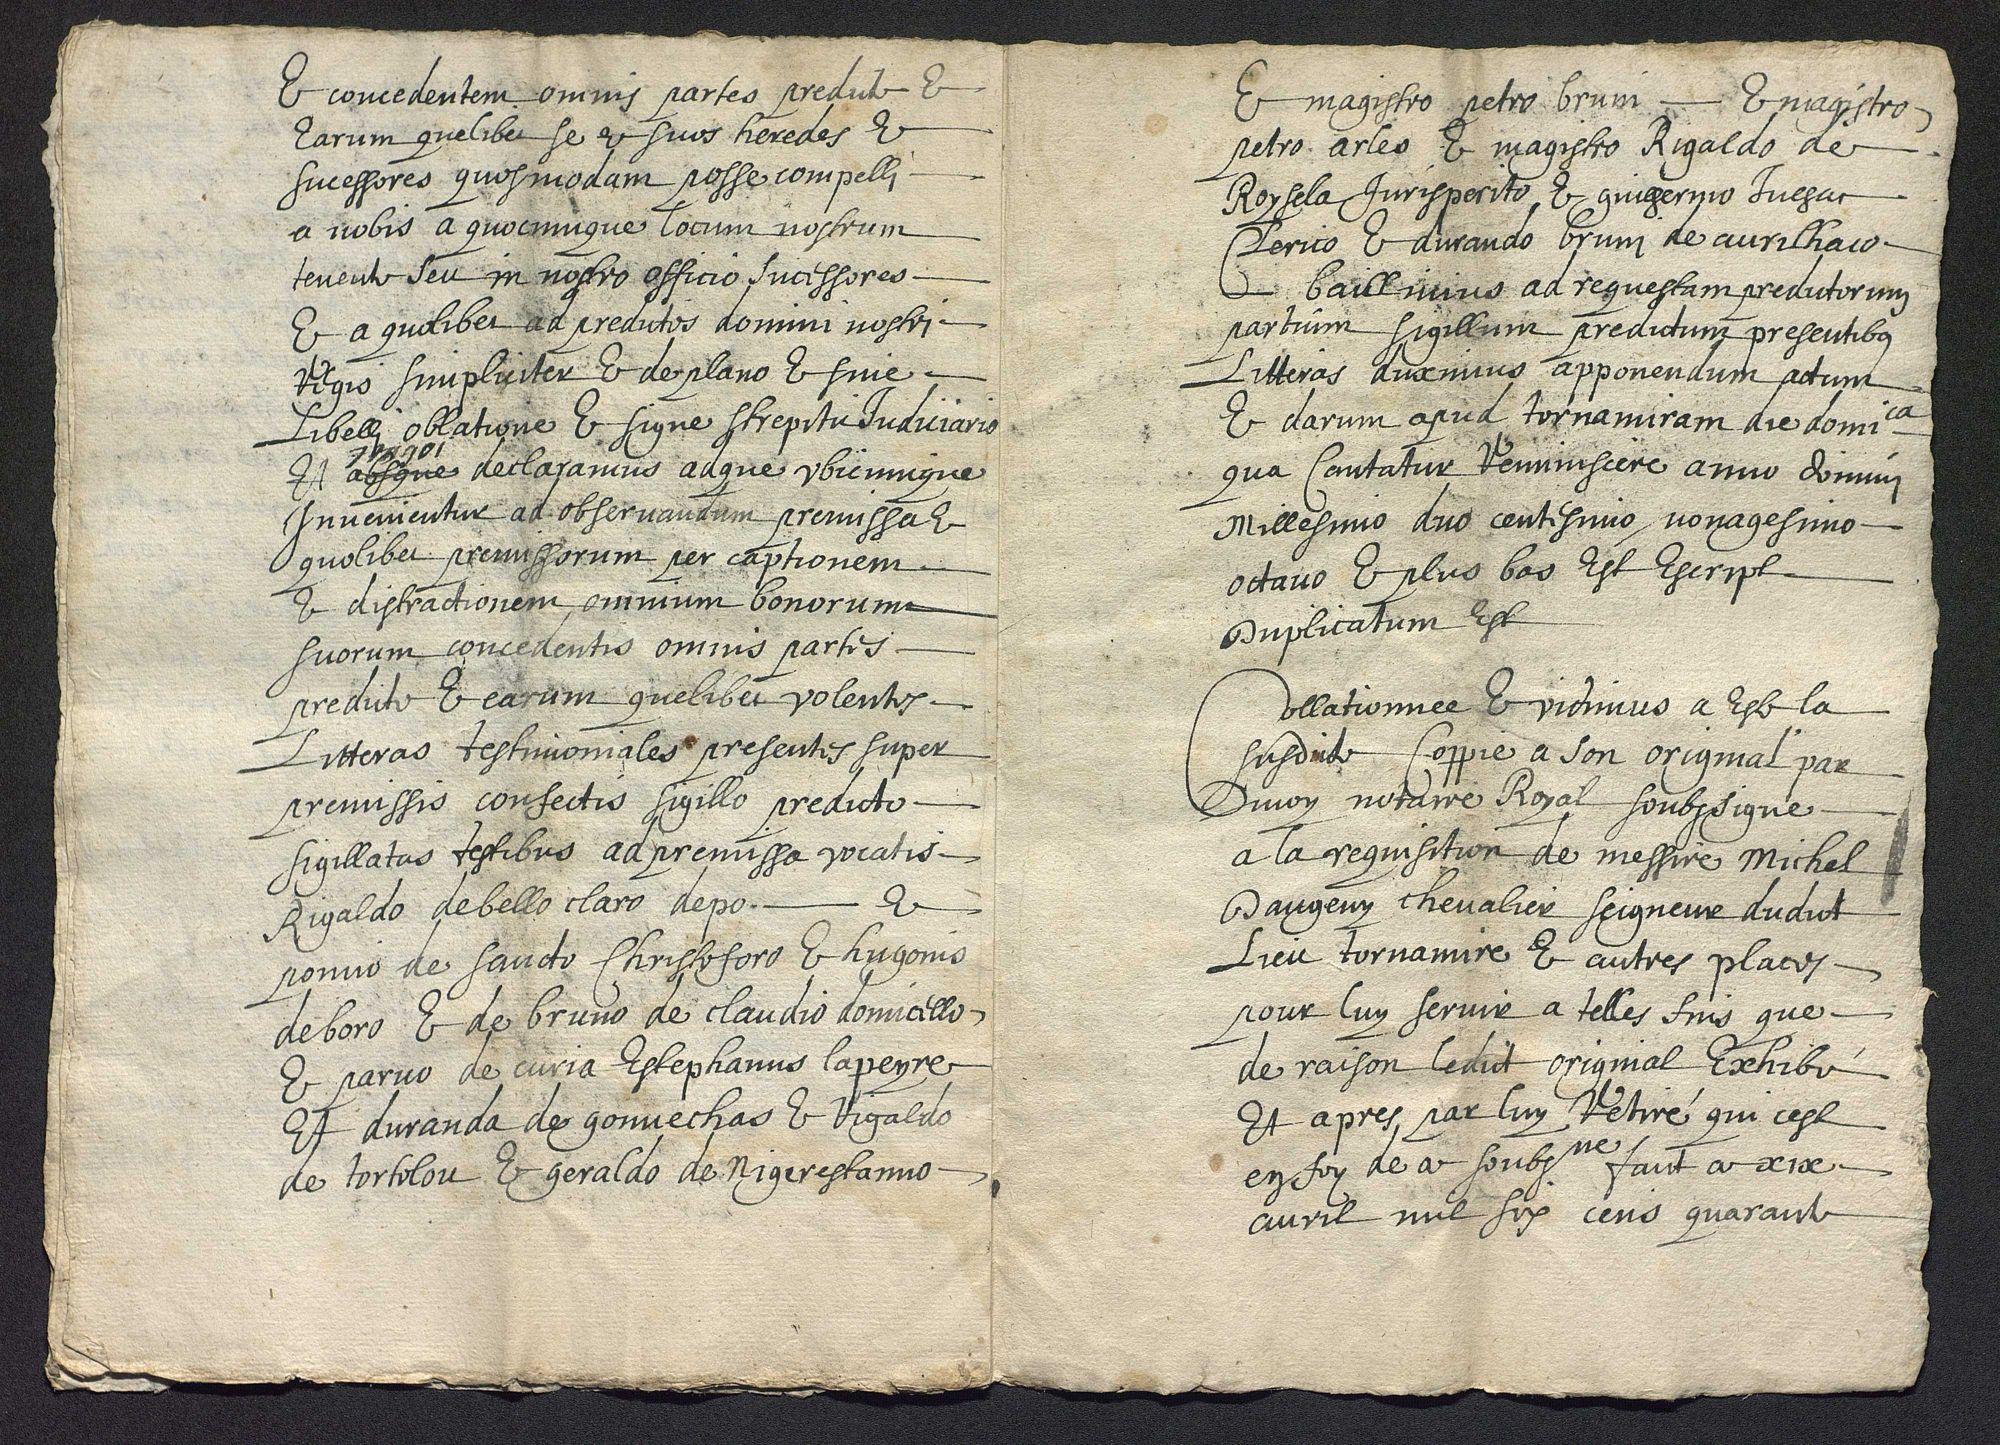 Et concedentem omnis partes predicte Et
Earum quelibet se et suos heredes Et
sucessores quosmodam posse compelli
a nobis a quocumque locum nostrum
tenente seu in nostro officio sucessores
Et a quolibet ad preditos domini nostri
Regis simpliciter Et de plano Et sine
Libelli oblatione Et signe strepitu Judiciario
Et absque declaramus adque vbicumque
Jnuenientur ad obseruandum premissa Et
quolibet premissorum per captionem
Et distractionem omnium bonorum
suorum concedentis omnis partes
predicte Et earum quelibet volentes
Litteras testimoniales presentes super
premissis confectis sigillo predicto
sigillatas testibus ad premissa vocatis
Rigaldo debello claro depo. Et
poncio de sancto Christoforo Et hugonis
deboro Et de bruno de claudio domicello
Et paruo de curia Estephanus lapeyre
Et duranda de gonuechas Et Rigaldo
de tortolou Et geraldo de Nigerestanno
Et magistro petro bruni Et magistro
petro arles Et magistro Rigaldo de
Roysela Jurisperito Et guigermo
Clerico Et durando bruni de aurilhaco
baillimus ad requestam predictorum
partium sigillum predictum presentibus
Litteras duximus apponendum actum
Et darum apud tornamiram die dominica
qua Cantatur Reminiscere anno domini
Millesimo duo centisimo nonagesimo
octauo Et plus bas Est Escript
Duplicatum Est
Collationnee Et vidimus a Este la
susdite Coppie a son original par
notaire Royal soubzsigne
a la requisition de messire Michel
Daugeny cheualier seigneur dudit
Lieu tornamire Et autres places
pour luy seruir a telles fins que
de raison ledit original Exhibé
Et apres par luy Retiré qui cest
en foy de a soubzne faict a xix
auril mil six cens quarante